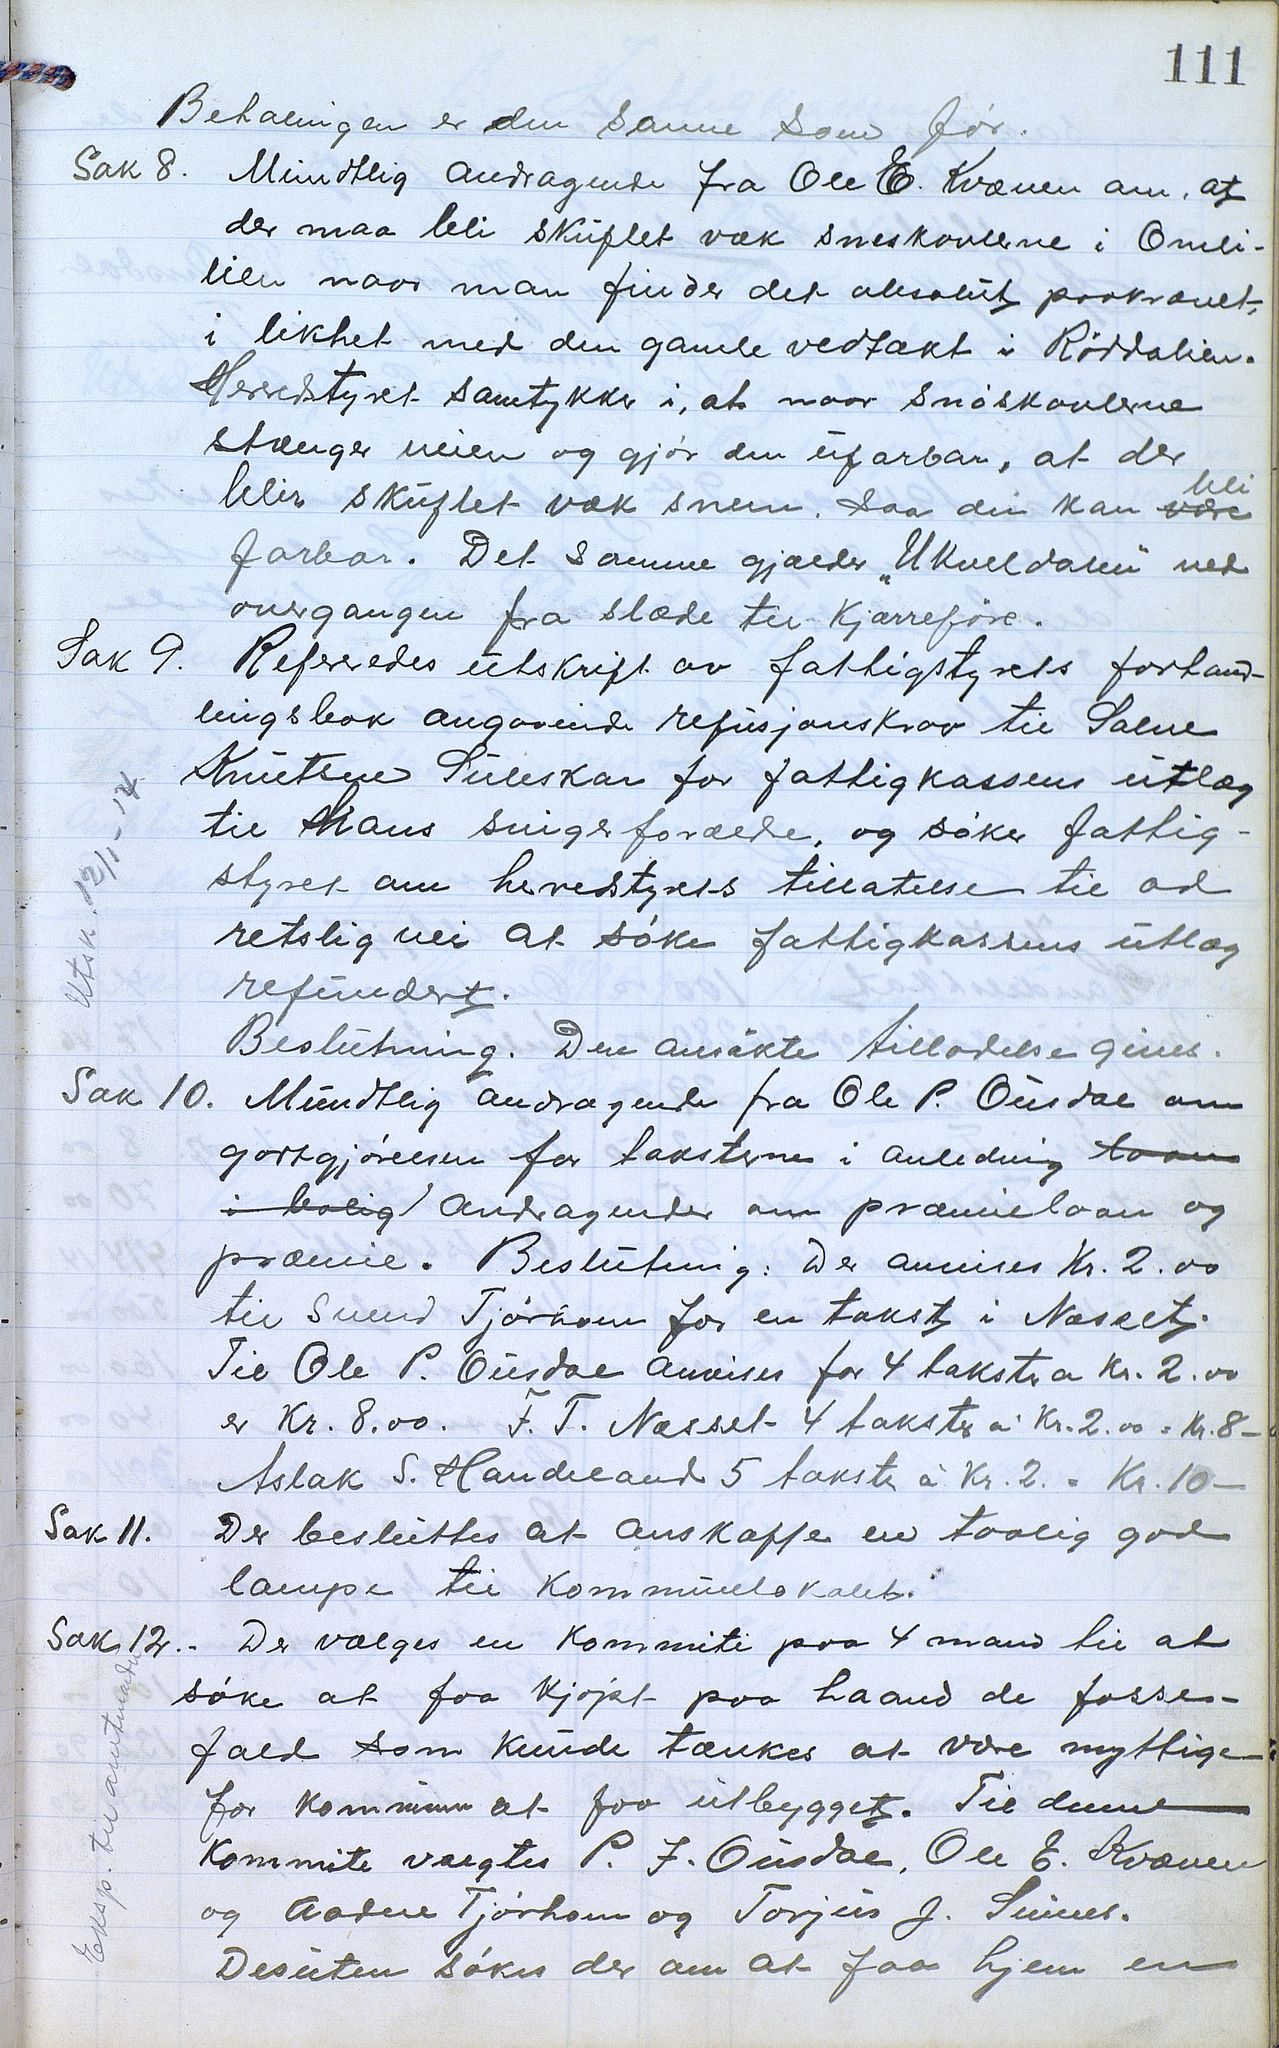 111
Betalingen er den samme som før.
Sak 8. Mundtlig andragende fra Ole E. Kvæven om, at
der maa bli skuflet væk sneskavlerne i Omli-
lien naar man finder det absolut paakrævet,
i likhet med den gamle vedtækt i Röddalien.
Herredstyret samtykker i, at naar snöskavlerne
stænger veien og gjör den ufarbar, at der
blir skuflet væk sneen, saa den kan være bli
farbar. Det samme gjælder „Ukveldalen" ved
overgangen fra slæde til Kjærreföre.
Sak 9. Refereredes utskrift av fattigstyrets forhand-
lingsbok angaaende refusjonskrav til Salve
Knutsen Suleskar for fattigkassens utlæg
til hans svigerforældre, og söker fattig-
styret om herredstyrets tillatelse til ad
retslig vei at söke fattigkassens utlæg
refundert.
Beslutning. Den ansökte tilladelse gives.
Utsk. 12/1-14
Sak 10. Mundtlig andragende fra Ole P. Ousdal om
godtgjörelsen for taksterne i anledning laan
i bolig andragender om præmielaan og
præmie. Beslutning: Der anvises Kr. 2.00
til Svend Tjörhom for en takst i Næsset.
Til Ole P. Ousdal anvises for 4 takster a Kr. 2.00
er Kr. 8.00. F. T. Næsset 4 takster à Kr. 2.00 = Kr. 8-
Aslak S. Handeland 5 takster à Kr. 2. = Kr. 10-
Sak 11. Der besluttes at anskaffe en taalig god
lampe til kommunelokalet.
Sak 12.- Der vælges en kommite paa 4 mand til at
söke at faa kjöpt paa haand de fosse-
fald som kunde tænkes at være nyttige
for kommunen at faa utbygget. Til denne
kommite valgtes P. F. Ousdal, Ole E. Kvæven
og Aadne Tjörhom og Torjus J. Sinnes.
Desuten sökes der om at faa hjem en
Eksp. til amtmanden